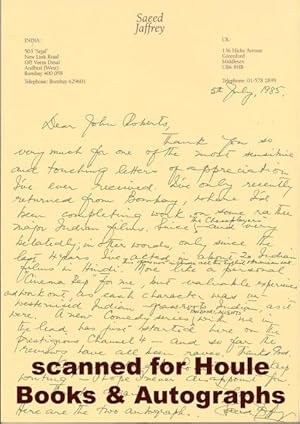 Saeed
Jaffrey
INDIA:
503 "Sejal"
New Link Road
Off Veera Desai
Andheri (West)
Bombay 400 058
Telephone: Bombay 629601
UK:
136 Hicks Avenue
Greenford
Middlesex
UB6 8HB
Telephone: 01-578 2899
5th July, 1985.
Dear John Roberts,
Thank you so
very much for one of the most sensitive
and touching letters of appreciation
I've ever received. I've only recently
returned from Bombay, where I'd
been completing work on some rather
major Indian films. Since, and very
belatedly, in other words, only since the
last 4 years I've acted in about 20 Indian
films in Hindi. More like a personal
for me, but valuable experience
as each character was
Indian
were. A new Comedy series with me in
the lead, has just started here on the
prestigious Channel 4 — and so far the
reviews have all been raves.
writing — I hope I never disappoint
Here are the two autograph.
scanned for Houle
Books & Autographs